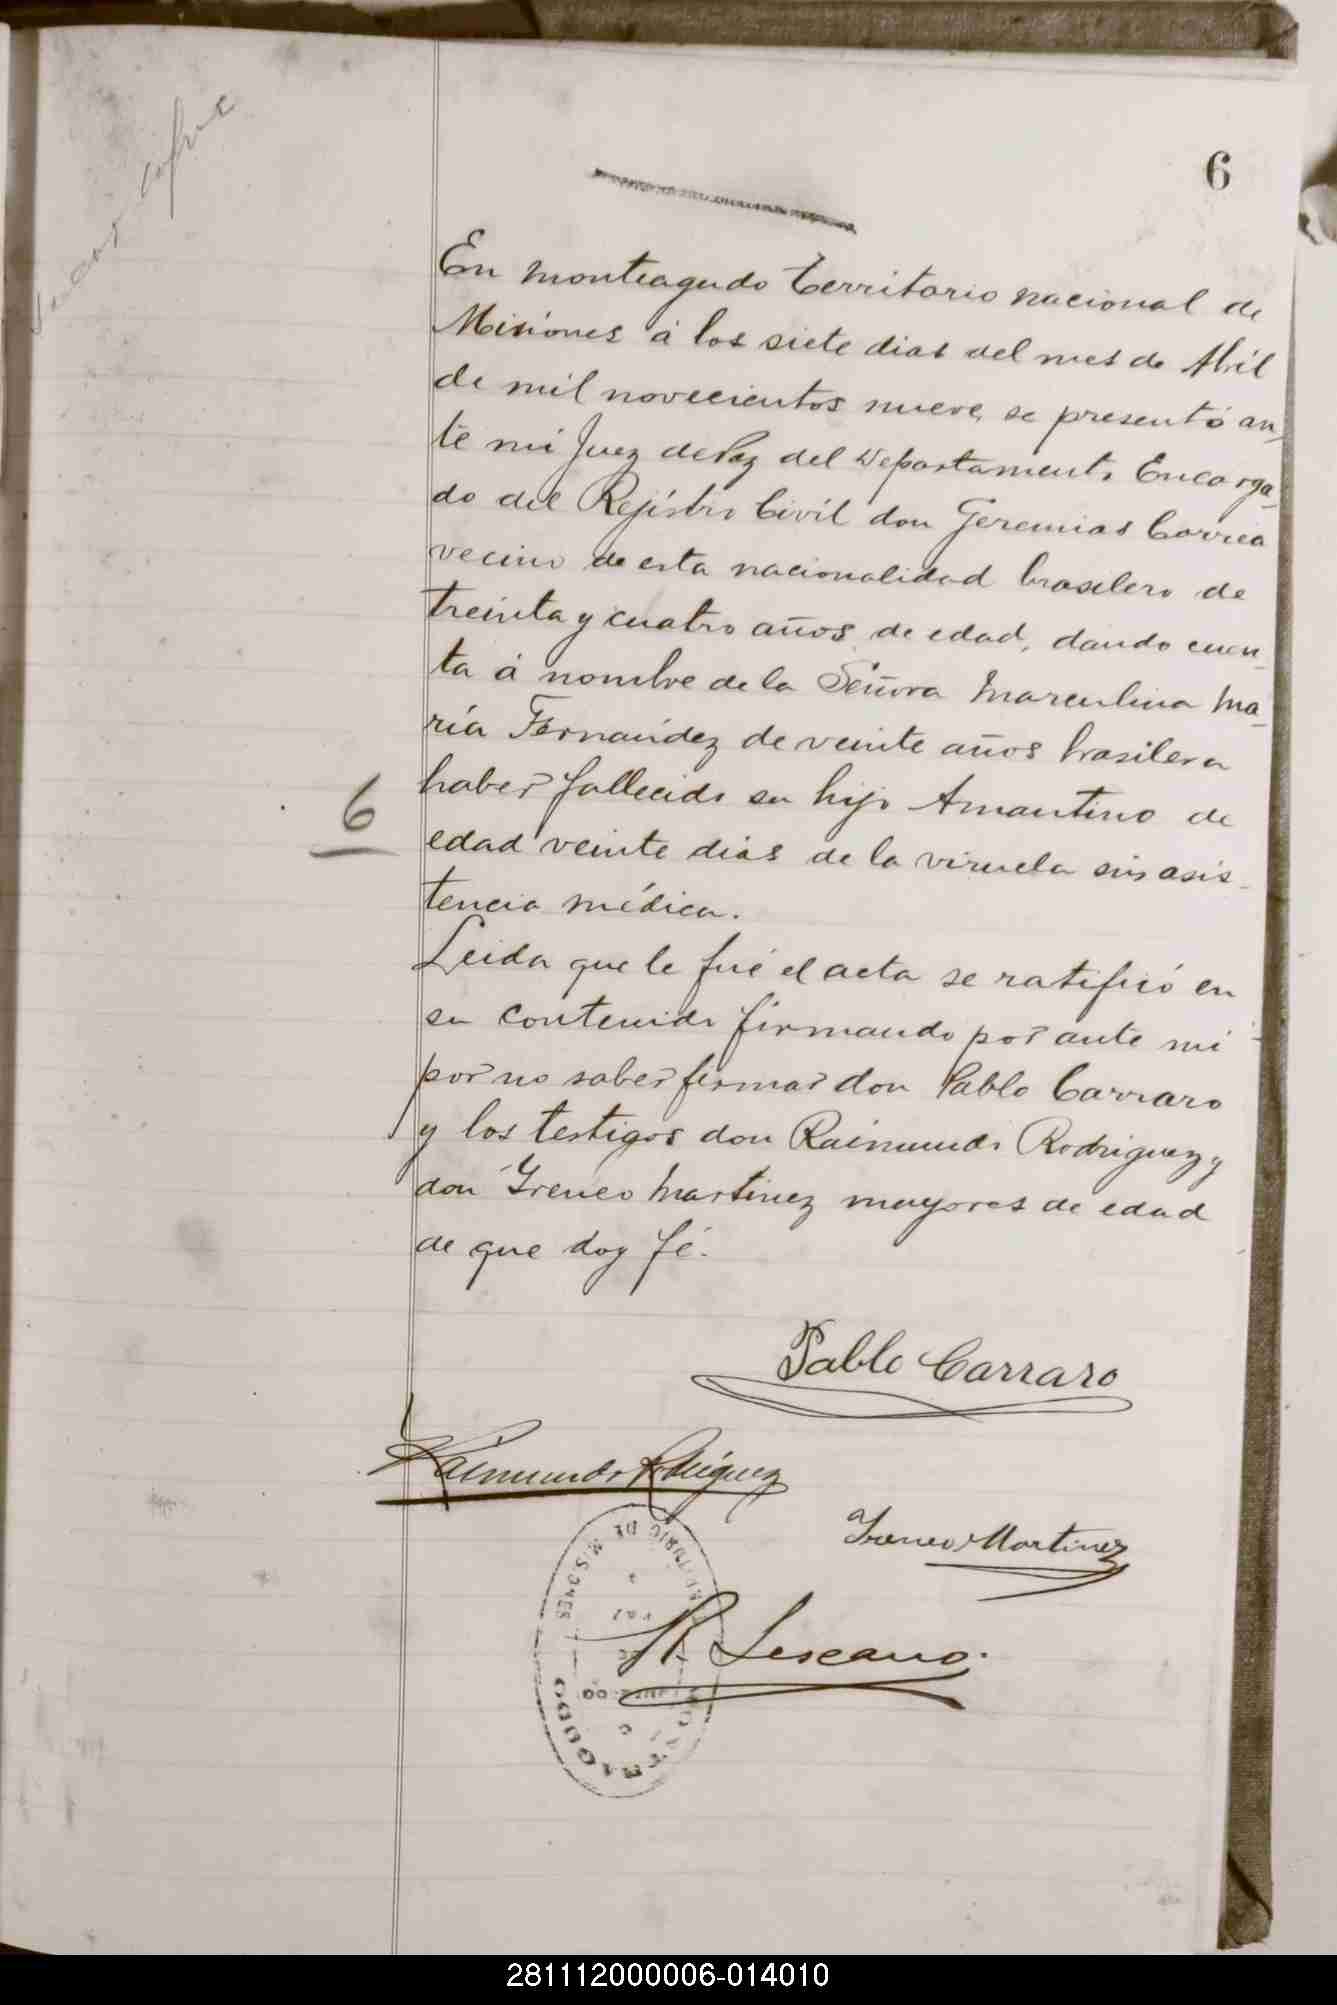 6
En Monteagudo territorio nacional de
Misiones á los siete dias del mes de Abril
de mil novecientos nueve, se presentó an-
te mi Juez de Paz del Departamento Encarga-
do del Rejistro Civil don Geremias Correa
vecino de esta nacionalidad brasilero de
treinta y cuatro años de edad, dando cuen-
ta á nombre de la Señora Marculina Ma-
ría Fernández de veinte años brasilera
haber fallecido su hijo Amantino de
6
edad veinte dias de la viruela sin asis-
tencia médica.
Leida que le fué el acta se ratificó en
su contenido firmando por ante mi
por no saber firmar don Pablo Carraro
y los testigos don Raimundo Rodriguez y
don Ireneo Martinez mayores de edad
de que doy fé.
Pablo Carraro
Raimundo Rodriguez
Ireneo Martinez
R. Lescano.
DE MISIONES
281112000006-014010